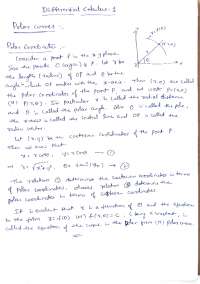 Differential Calculus-1
Polar curves :-
Polar Coordinates :-
Consider a point P in the xy plane.
Join the points O (origin) & P. Let r be
the length (radius) of OP and θ be the
angle which OP makes with the x-axis. Then (r,θ) are called
the Polar Coordinates of the point P, and we write P(r,θ)
P(r,θ). In particular r is called the radial distance
and θ is called the polar angle. Also O is called the pole,
the x-axis is called the initial line and OP is called the
radius vector.
Let (x,y) be the cartesian coordinates of the point P
Then we have that
x = r cosθ, y = r sinθ → ①
⇒ r = √x²+y², θ = tan⁻¹(y/x) → ②
The relation ① determines the cartesian coordinates in terms
of polar coordinates, relation ② determine the
polar coordinates in terms of cartesian coordinates.
It is evident that r is a function of θ and the equation
in the form r = f(θ) (or) f(r,θ) = c, c being a constant, is
called the equation of the curve in the polar form (or) polar curve